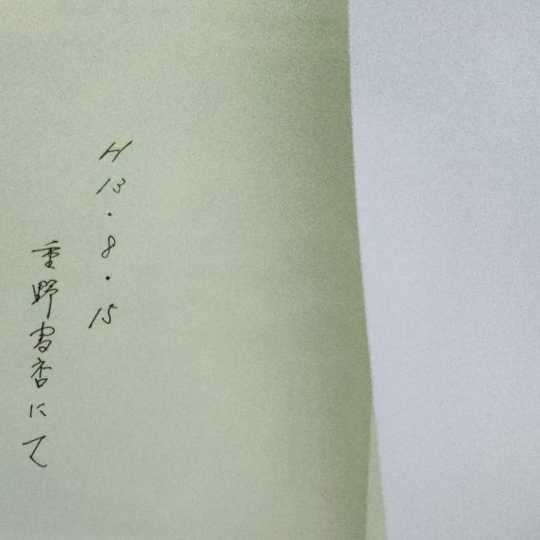 H13・8・15
重野書店にて